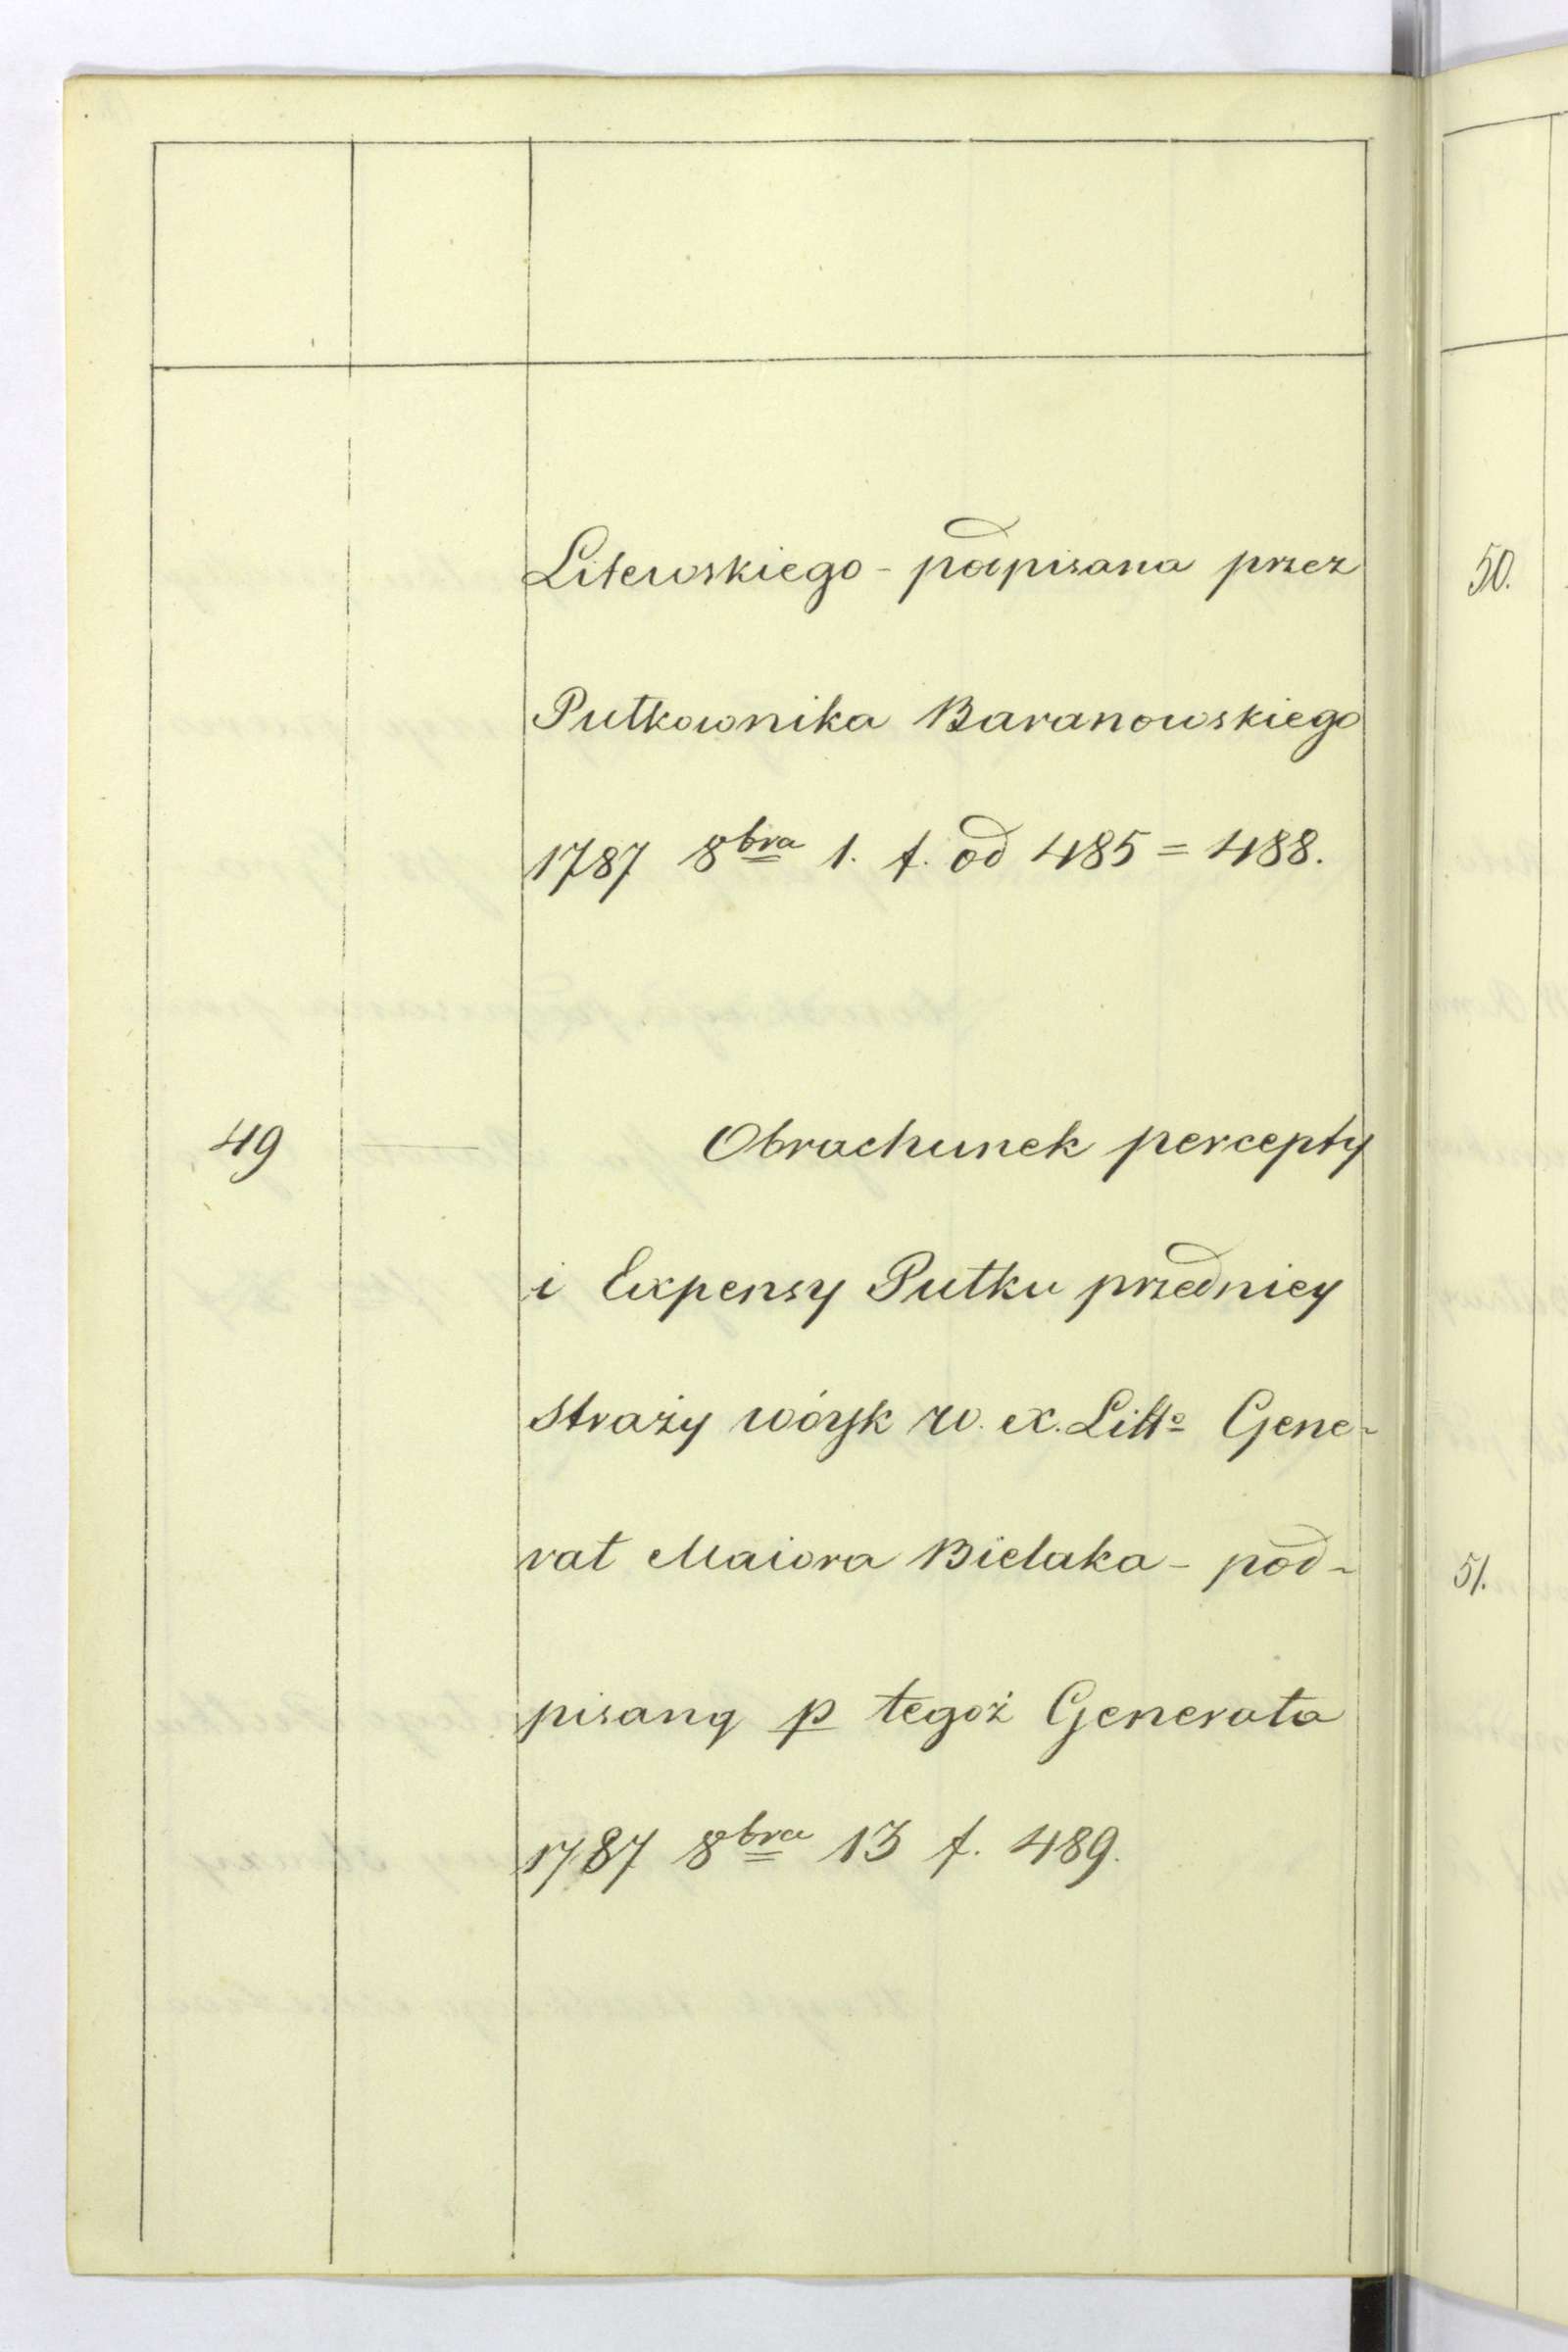 Litewskiego - podpisana przez
Pułkownika Baranowskiego
1787 8bra 1. f. od 485 = 488.
49 — Obrachunek percepty
i Expensy Pułku przedniey
Straży wóysk W. X. Litto Gene-
rał Maiora Bielaka - pod-
pisany p tegoż Generała
1787 8bra 13 f. 489.
50.
51.